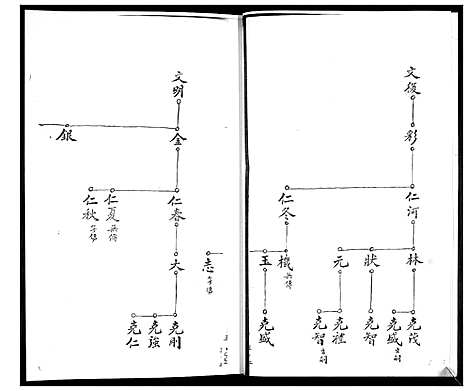 文復
彩
仁河
仁冬
林
狀
元
機
無傳
玉
克茂
克盛
克智
克禮
克智
克盛
文明
金
銀
仁春
仁夏
無傳
仁秋
大
志
克剛
克強
克仁